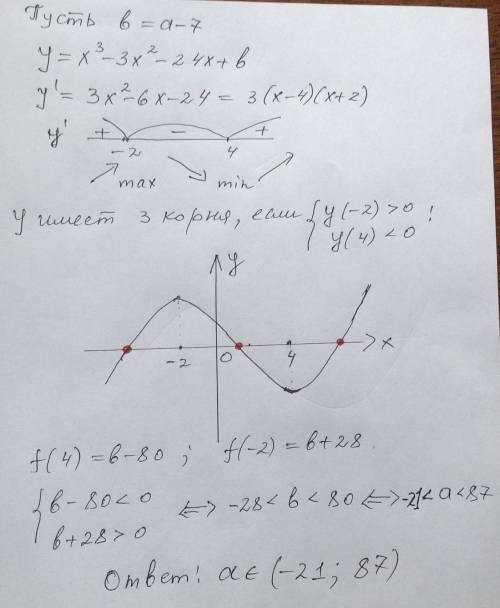 Пусть в = а-7
y = x³-3x²-24x+в
y' = 3x²-6x-24 = 3(x-4)(x+2)
y' + - +
-2 4
max min
У имеет 3 корня, если { y(-2)>0 !
y(4)<0
y
-2 0 4 x
f(4) = в-80 ; f(-2) = в+28.
{ в-80<0
в+28>0 <=> -28<в<80 <=> -21<а<87
Ответ! а∈(-21; 87)